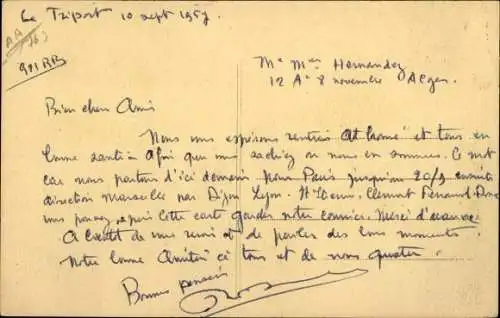 Le Tréport 10 sept 1957.
AA
981 RB
Mr Mme Hernandez
12 A 8 novembre Alger.
Bien chers Amis
Nous vous espérons rentrés "at home" et tous en
bonne santé. Afin que vous sachiez où nous en sommes. Ce mot
car nous partons d'ici demain pour Paris jusqu'au 20/9 ensuite
direction Marseille par Dijon Lyon. St Etienne, Clermont Ferrand
vous pouvez après cette carte garder notre courrier. Merci d'avance
A bientôt de vous revoir et de parler des bons moments.
Notre bonne Amitié à tous et de nous quatre.
Bonnes pensées